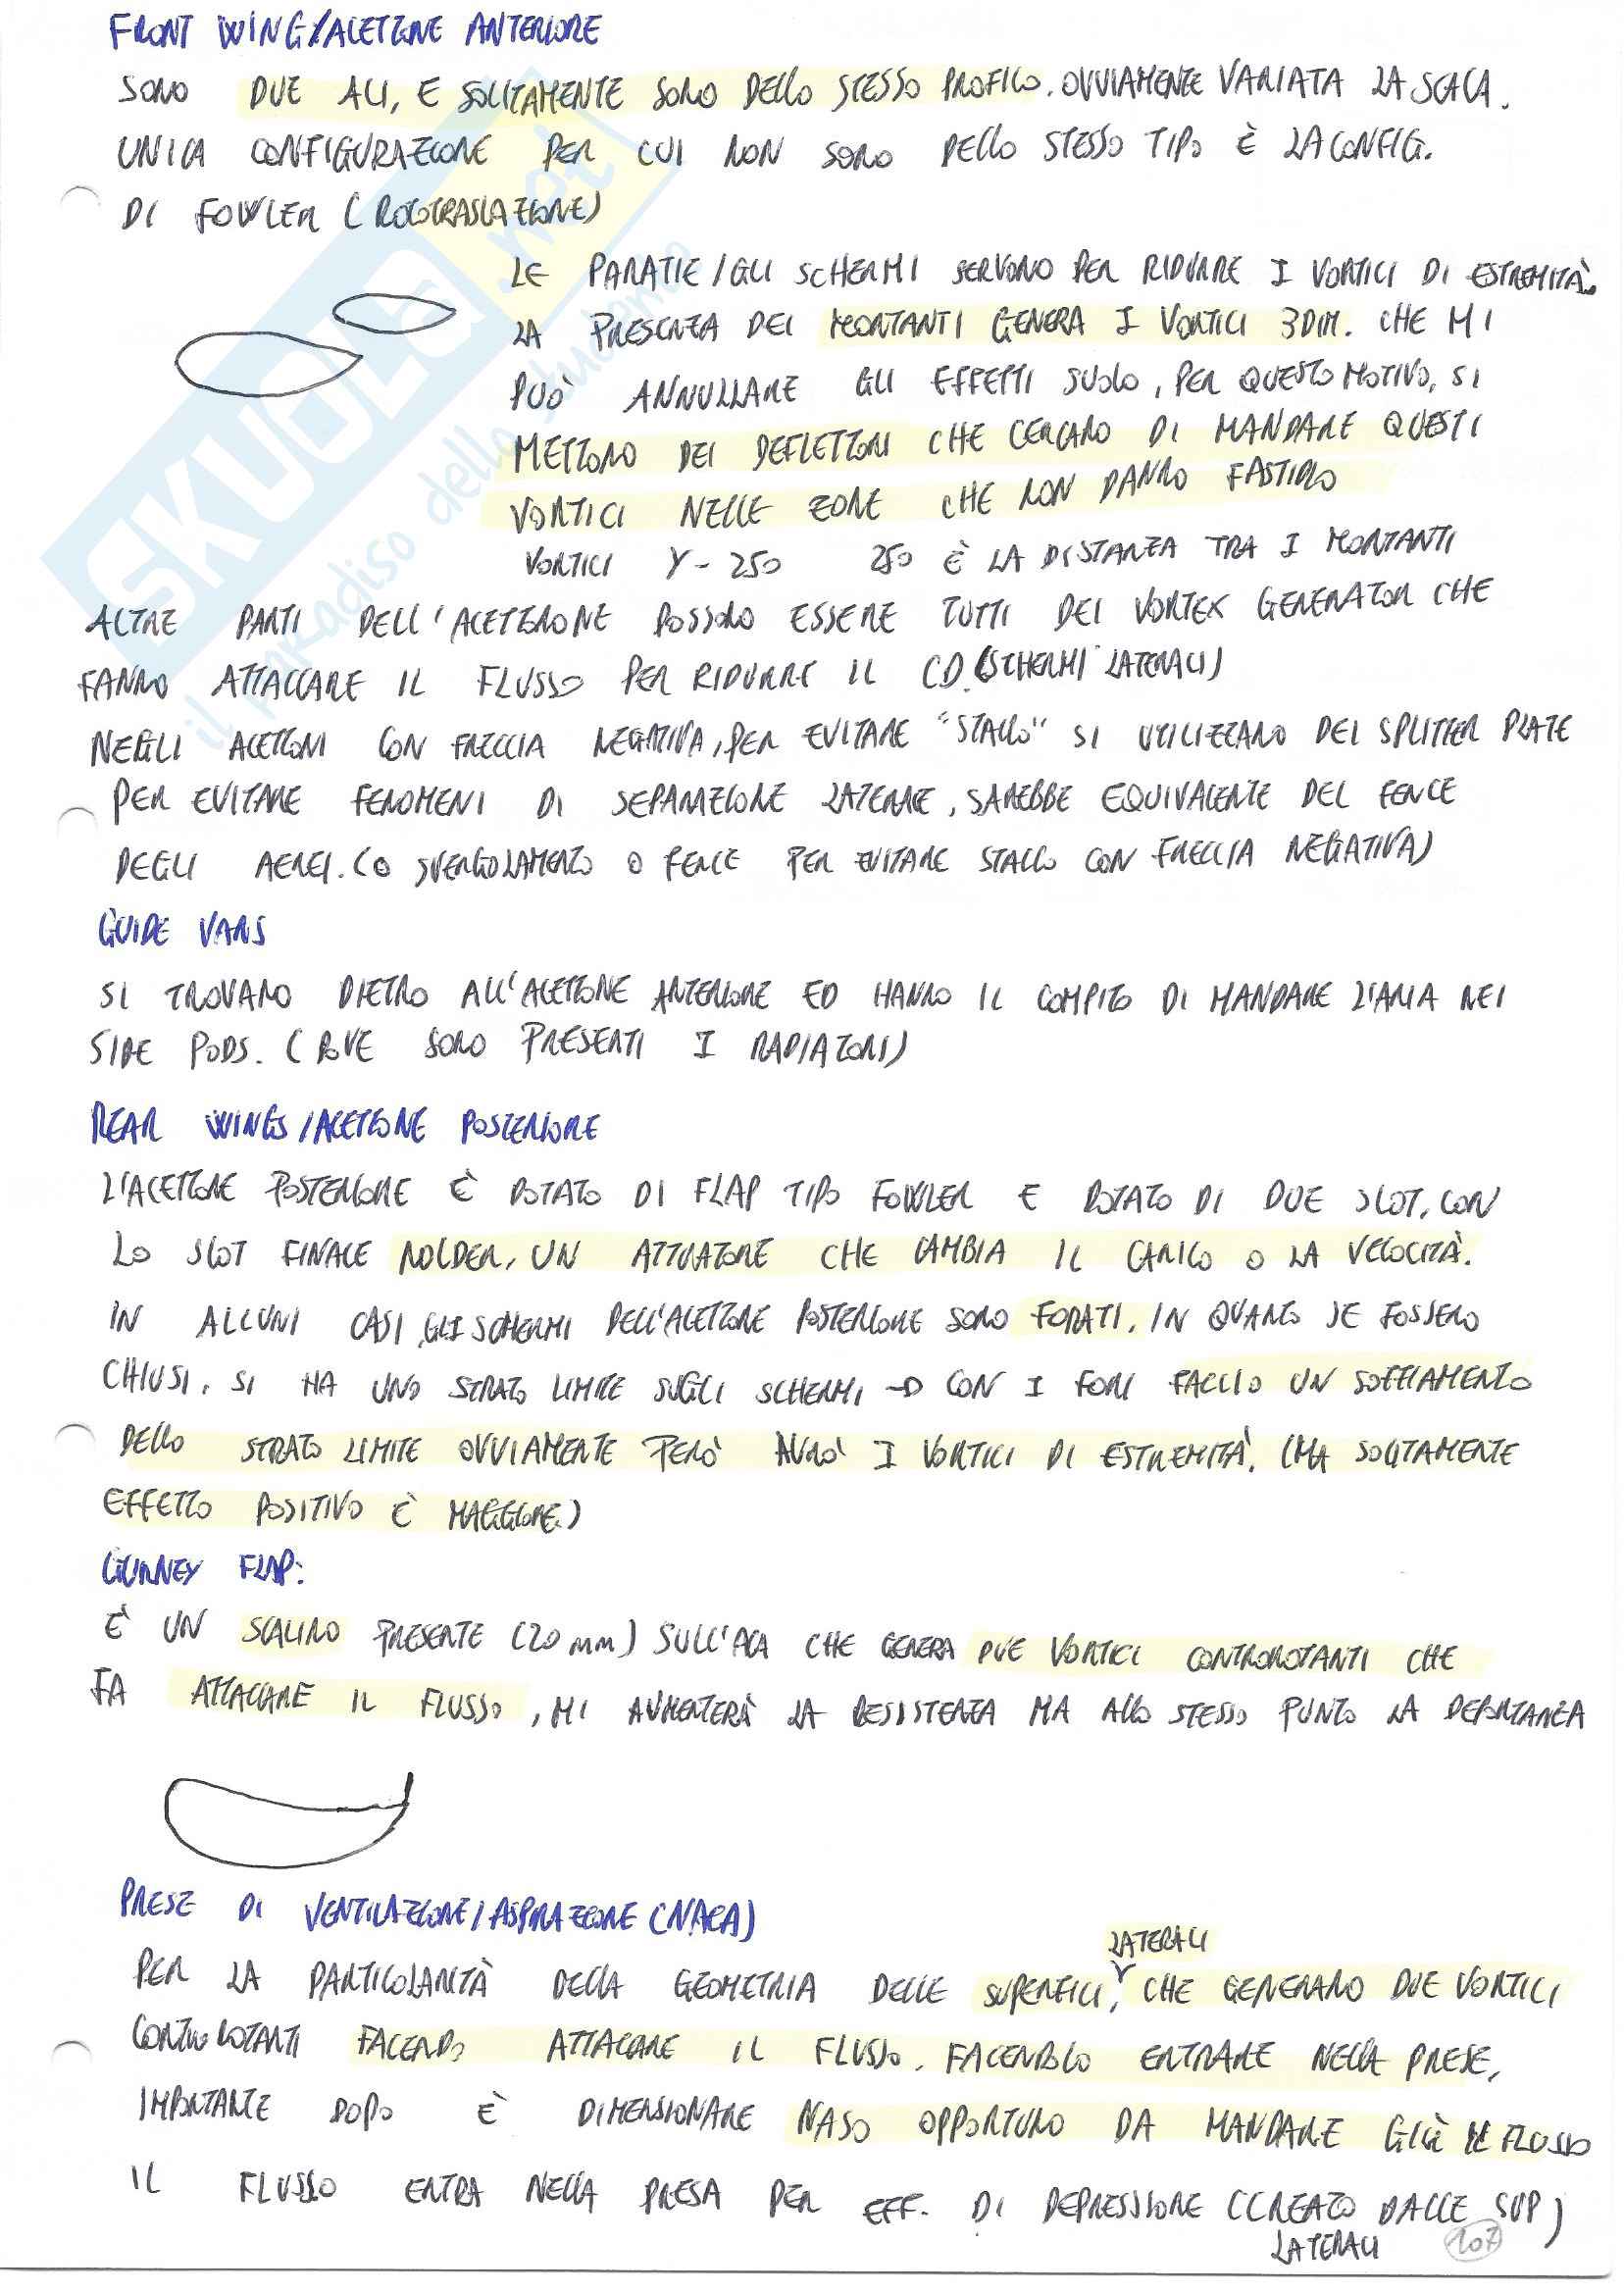 FRONT WING/ALETTONE ANTERIORE
SONO DUE ALI, E SOLITAMENTE SONO DELLO STESSO PROFILO. OVVIAMENTE VARIATA LA SCALA.
UNICA CONFIGURAZIONE PER CUI NON SONO DELLO STESSO TIPO È LA CONFIG.
DI FOWLER (ROTOTRASLAZIONE)
LE PARATIE/GLI SCHERMI SERVONO PER RIDURRE I VORTICI DI ESTREMITÀ.
LA PRESENZA DEI MONTANTI GENERA I VORTICI 3DIM. CHE MI
PUÒ ANNULLARE GLI EFFETTI SUOLO, PER QUESTO MOTIVO, SI
METTONO DEI DEFLETTORI CHE CERCANO DI MANDARE QUESTI
VORTICI NELLE ZONE CHE NON DANNO FASTIDIO
VORTICI Y-250 250 È LA DISTANZA TRA I MONTANTI
ALTRE PARTI DELL'ALETTONE POSSONO ESSERE TUTTI DEI VORTEX GENERATOR CHE
FANNO ATTACCARE IL FLUSSO PER RIDURRE IL CD (SCHERMI LATERALI)
NEGLI ALETTONI CON FRECCIA NEGATIVA, PER EVITARE "STALLO" SI UTILIZZANO DEI SPLITTER PLATE
PER EVITARE FENOMENI DI SEPARAZIONE LATERALE, SAREBBE EQUIVALENTE DEL FENCE
DEGLI AEREI. (O SVERGOLAMENTO O FENCE PER EVITARE STALLO CON FRECCIA NEGATIVA)
GUIDE VANS
SI TROVANO DIETRO ALL'ALETTONE ANTERIORE ED HANNO IL COMPITO DI MANDARE L'ARIA NEI
SIDE PODS. (DOVE SONO PRESENTI I RADIATORI)
REAR WINGS/ALETTONE POSTERIORE
L'ALETTONE POSTERIORE È DOTATO DI FLAP TIPO FOWLER E DOTATO DI DUE SLOT, CON
LO SLOT FINALE NOLDER, UN ATTUATORE CHE CAMBIA IL CARICO O LA VELOCITÀ.
IN ALCUNI CASI, GLI SCHERMI DELL'ALETTONE POSTERIORE SONO FORATI, IN QUANTO SE FOSSERO
CHIUSI, SI HA UNO STRATO LIMITE SUGLI SCHERMI → CON I FORI FACCIO UN SOFFIAMENTO
DELLO STRATO LIMITE OVVIAMENTE PERÒ AVRÒ I VORTICI DI ESTREMITÀ. (MA SOLITAMENTE
EFFETTO POSITIVO È MAGGIORE.)
GURNEY FLAP:
È UN SCALINO PRESENTE (20 mm) SULL'ALA CHE GENERA DUE VORTICI CONTROROTANTI CHE
FA ATTACCARE IL FLUSSO, MI AUMENTERÀ LA RESISTENZA MA ALLO STESSO PUNTO LA DEPORTANZA
PRESE DI VENTILAZIONE/ASPIRAZIONE (NACA)
LATERALI
PER LA PARTICOLARITÀ DELLA GEOMETRIA DELLE SUPERFICI, CHE GENERANO DUE VORTICI
CONTROROTANTI FACENDO ATTACCARE IL FLUSSO. FACENDOLO ENTRARE NELLA PRESE,
IMPORTANTE DOPO È DIMENSIONARE NASO OPPORTUNO DA MANDARE GIÙ IL FLUSSO
IL FLUSSO ENTRA NELLA PRESA PER EFF. DI DEPRESSIONE (CREATO DALLE SUP)
LATERALI
107
SKUOLA.net
il paradiso dello studente